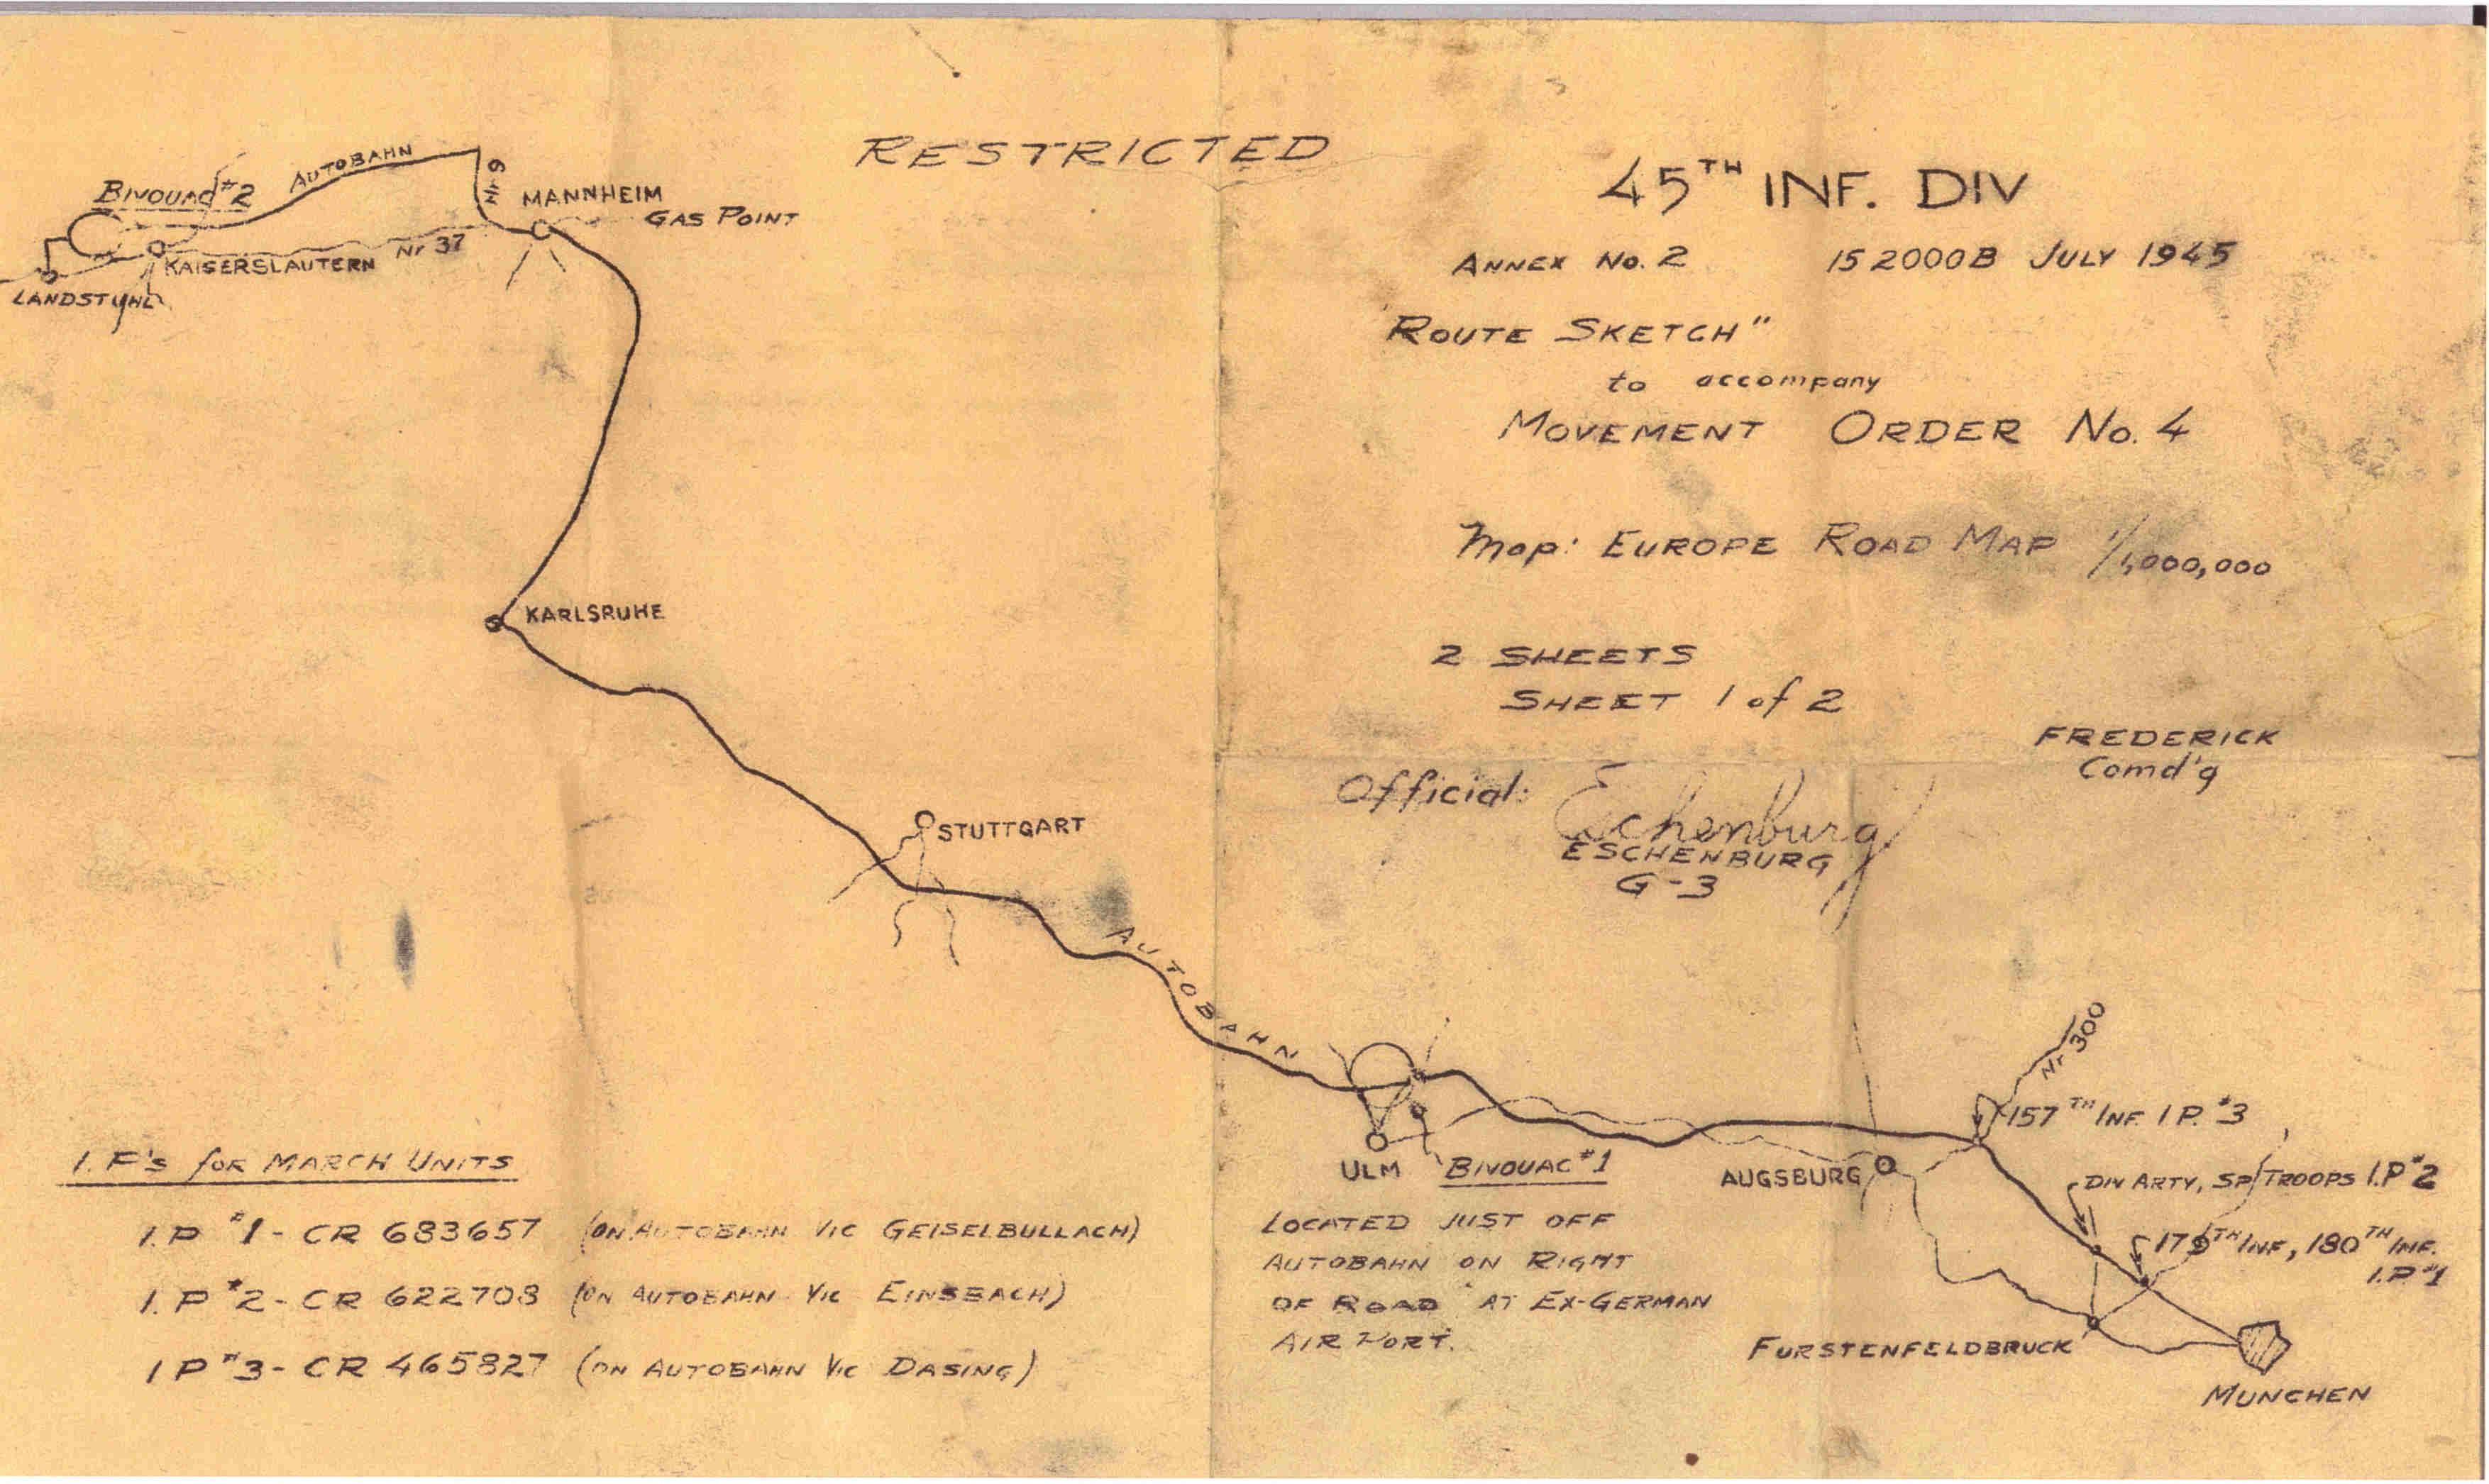 RESTRICTED
45TH INF. DIV
ANNEX No. 2 15 2000B JULY 1945
"ROUTE SKETCH"
to accompany
MOVEMENT ORDER No. 4
Map: EUROPE ROAD MAP 1/1,000,000
2 SHEETS
SHEET 1 of 2
FREDERICK
Comd'g
Official: Eschenburg
ESCHENBURG
G-3
BIVOUAC #2
AUTOBAHN
Nr 9
MANNHEIM
GAS POINT
Nr 37
KAISERSLAUTERN
LANDSTUHL
KARLSRUHE
STUTTGART
AUTOBAHN
ULM
BIVOUAC #1
LOCATED JUST OFF
AUTOBAHN ON RIGHT
OF ROAD AT EX-GERMAN
AIR PORT.
AUGSBURG
Nr 300
157TH INF. I.P. #3
DIV ARTY, SP TROOPS I.P #2
179TH INF, 180TH INF.
I.P #1
FURSTENFELDBRUCK
MUNCHEN
I.P's for MARCH UNITS
I.P #1 - CR 683657 (ON AUTOBAHN VIC GEISELBULLACH)
I.P #2 - CR 622708 (ON AUTOBAHN VIC EINSBACH)
I P #3 - CR 465827 (ON AUTOBAHN VIC DASING)